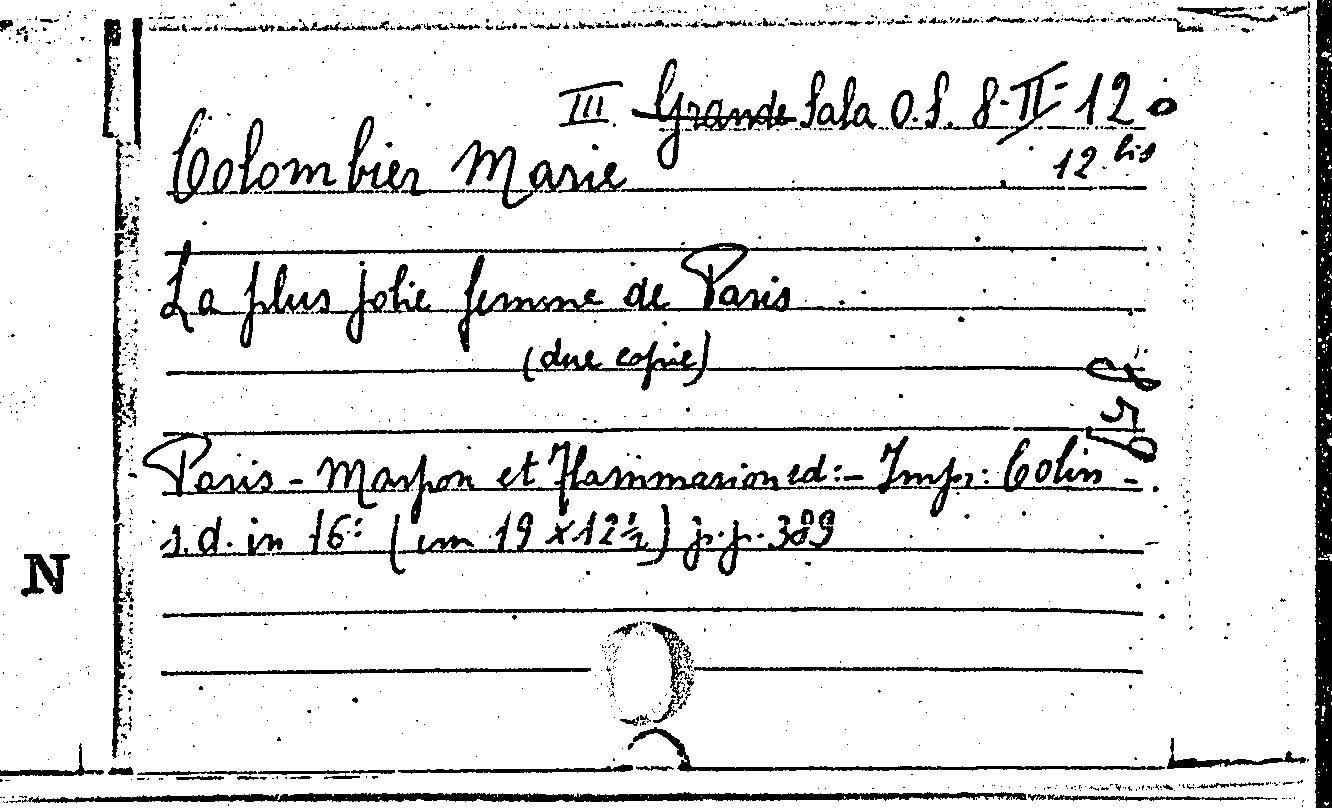 III Grande Sala O.S. 8-II-12
12 bis
Colombier Marie
La plus jolie femme de Paris
(due copie)
Paris - Marpon et Flammarion ed:- Imp: Colin -
s.d. in 16: (cm 19 x 12½) p.p. 389
N